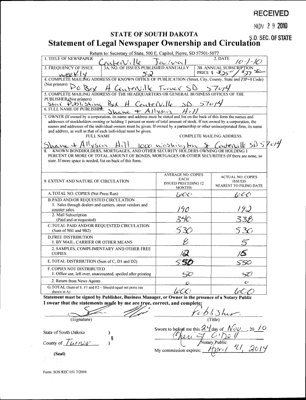 RECEIVED
NOV 29 2010
S.D. SEC. OF STATE
STATE OF SOUTH DAKOTA
Statement of Legal Newspaper Ownership and Circulation
Return to: Secretary of State, 500 E. Capitol, Pierre, SD 57501-5077
1. TITLE OF NEWSPAPER Centerville Journal 2. DATE 10-1-10
3. FREQUENCY OF ISSUE weekly 3A. NO. OF ISSUES PUBLISHED ANNUALLY 52 3B. ANNUAL SUBSCRIPTION PRICE $
4. COMPLETE MAILING ADDRESS OF KNOWN OFFICE OF PUBLICATION (Street, City, County, State and ZIP+4 Code)
(Not printers) PO Box A Centerville Turner SD 57014
5. COMPLETE MAILING ADDRESS OF THE HEADQUARTERS OR GENERAL BUSINESS OFFICES OF THE
PUBLISHER (Not printers)
Star Publishing Box A Centerville SD 57014
6. FULL NAME OF PUBLISHER: Shane & Allyson Hill
7. OWNER (If owned by a corporation, its name and address must be stated and list on the back of this form the names and
addresses of stockholders owning or holding 1 percent or more of total amount of stock. If not owned by a corporation, the
names and addresses of the individual owners must be given. If owned by a partnership or other unincorporated firm, its name
and address, as well as that of each individual must be given.)
FULL NAME COMPLETE MAILING ADDRESS
Shane & Allyson Hill 1000 Washington St Centerville SD 57014
8. KNOWN BONDHOLDERS, MORTGAGES, AND OTHER SECURITY HOLDERS OWNING OR HOLDING 1
PERCENT OR MORE OF TOTAL AMOUNT OF BONDS, MORTGAGES OR OTHER SECURITIES (If there are none, so
state. If more space is needed, list on back of this form)
9. EXTENT AND NATURE OF CIRCULATION AVERAGE NO. COPIES EACH ISSUE DURING PRECEDING 12 MONTHS ACTUAL NO. COPIES ISSUED NEAREST TO FILING DATE
A. TOTAL NO. COPIES (Net Press Run) 600 600
B. PAID AND/OR REQUESTED CIRCULATION
1. Sales through dealers and carriers, street vendors and
counter sales. 190 192
2. Mail Subscription
(Paid and or requested) 340 338
C. TOTAL PAID AND/OR REQUESTED CIRCULATION
(Sum of 9B1 and 9B2) 530 530
D. FREE DISTRIBUTION
1. BY MAIL, CARRIER OR OTHER MEANS 8 5
2. SAMPLES, COMPLIMENTARY AND OTHER FREE
COPIES 12 15
E. TOTAL DISTRIBUTION (Sum of C, D1 and D2) 550 550
F. COPIES NOT DISTRIBUTED
1. Office use, left over, unaccounted, spoiled after printing 50 50
2. Return from News Agents 0 0
G. TOTAL (Sum of E, F1 and F2 - Should equal net press run
shown in A) 600 600
Statement must be signed by Publisher, Business Manager, or Owner in the presence of a Notary Public
I swear that the statements made by me are true, correct, and complete:
Publisher
(Signature) (Title)
State of South Dakota )
County of Turner )
(Seal)
Sworn to before me this 24 day of Nov. 20 10
Notary Public
My commission expires: April 21, 2014
Form: SOS REC 051 7/2004